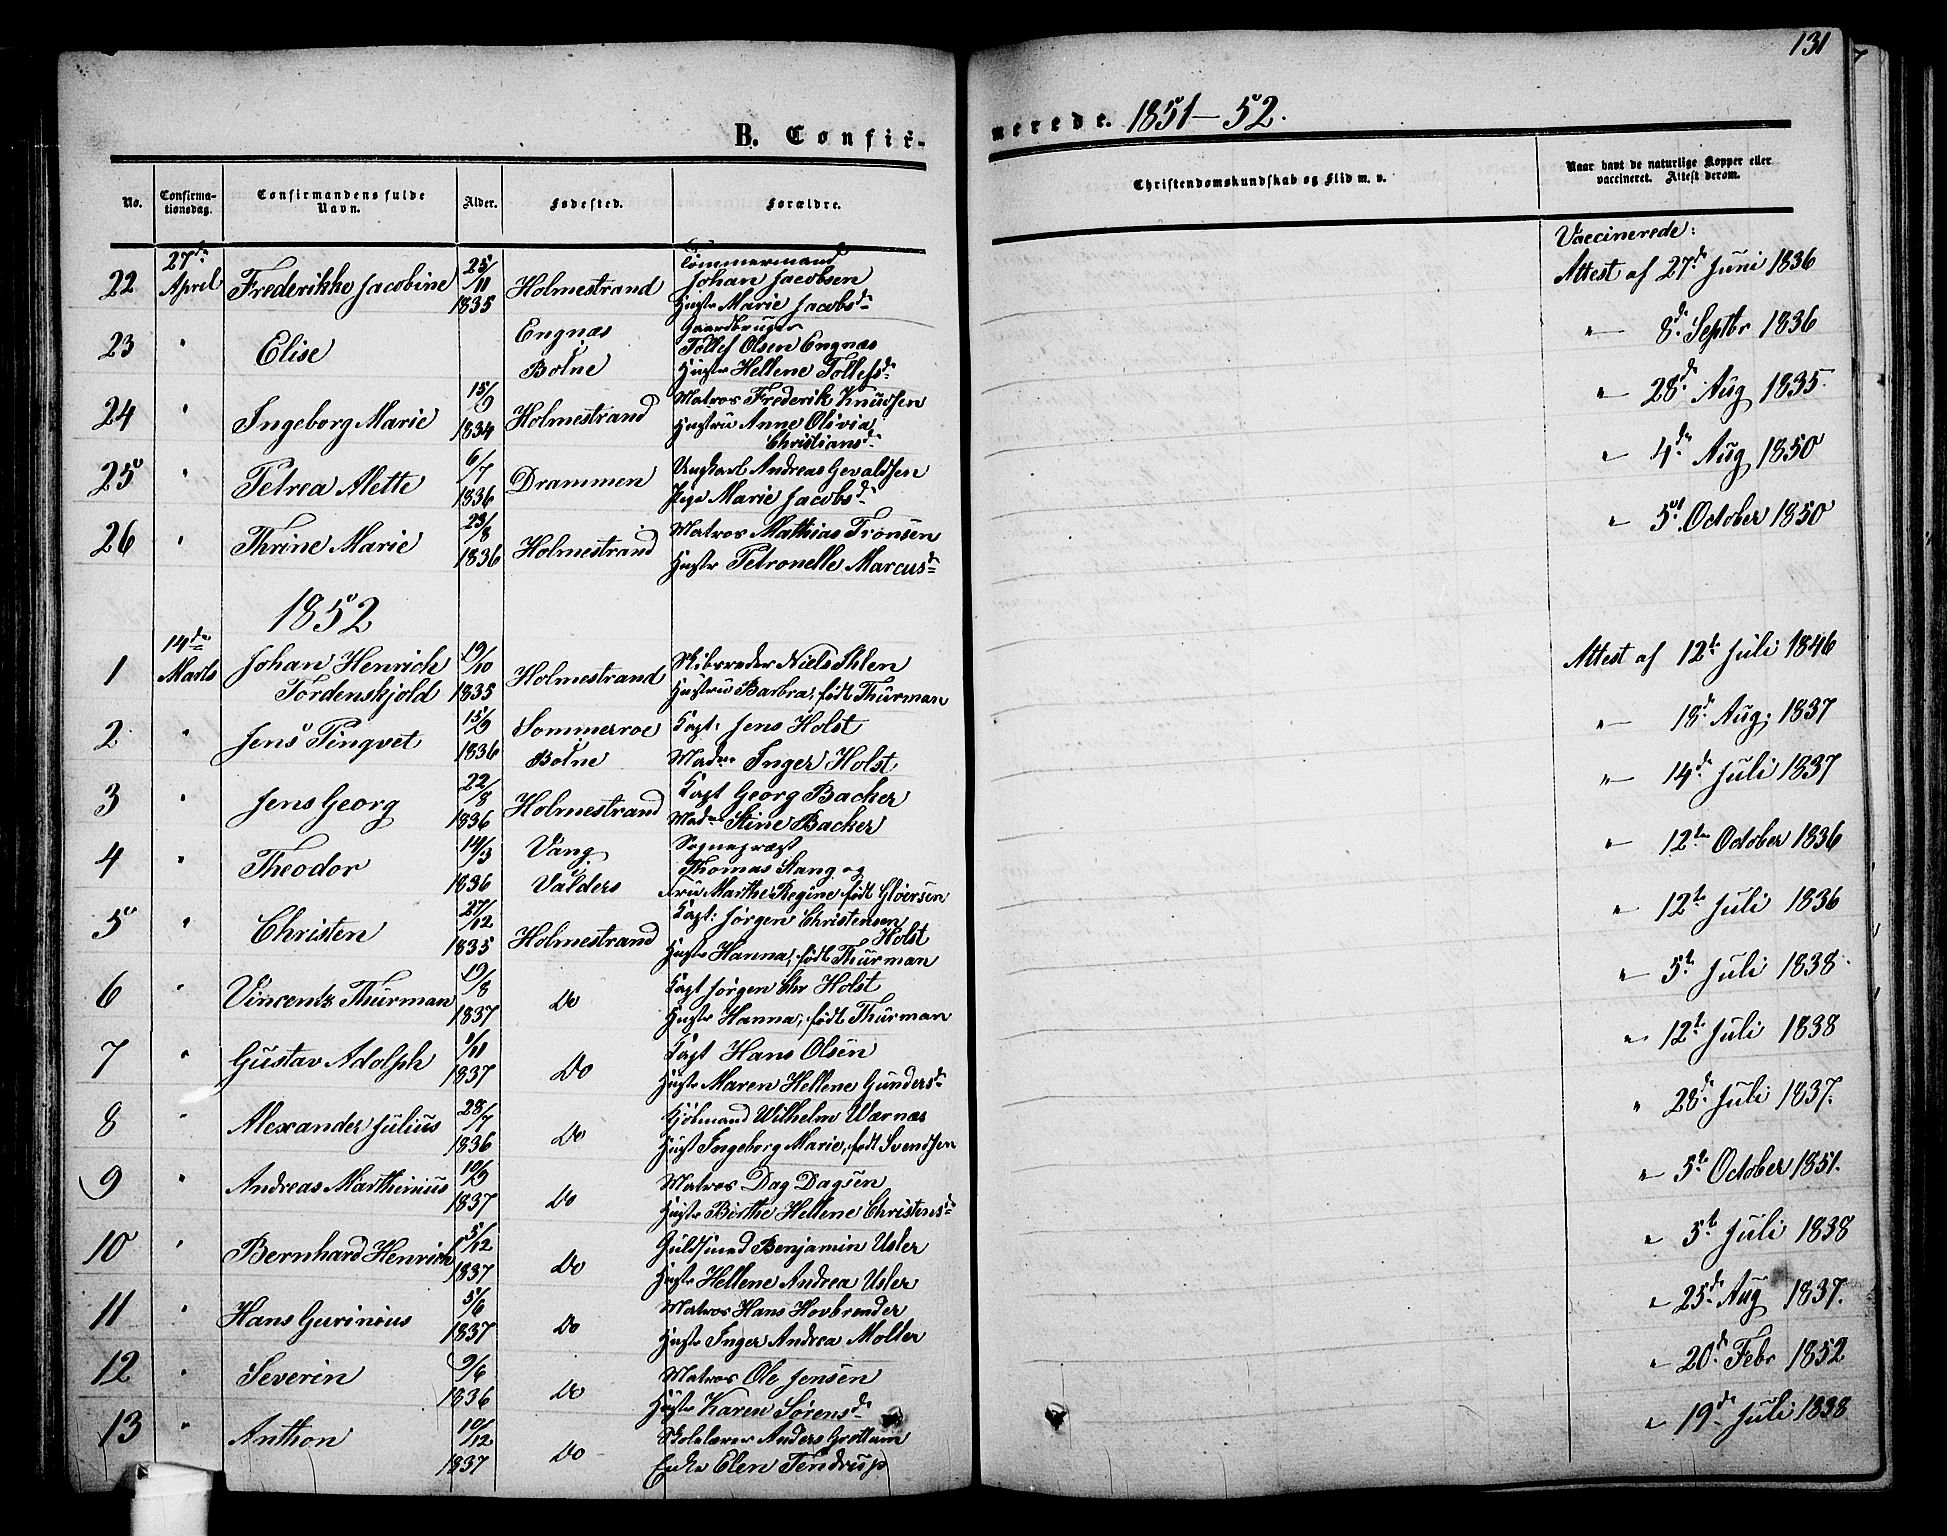 131
B. Confirmerede. 1851-52.
No. Confirmationsdag. Confirmandens fulde Navn. Alder. Fødested. Forældre. Christendomskundskab og Flid m. v. Naar havt de naturlige Kopper eller vaccineret. Attest derom.
Vaccinerede:
22 27de April Frederikke Jacobine 25/11 1835 Holmestrand Tømmermand Johan Jacobsen Hustr Marie Jacobsd. Attest af 27de Juni 1836
23 " Elise Engnæs Botne Gaardbruger Tollef Olsen Engnæs Hustr Hellene Tollefsd. " 8de Septbr 1836
24 " Ingeborg Marie 15/9 1834 Holmestrand Matros Frederik Knudsen Hustru Anne Olivia Christiansd. " 28de Aug 1835.
25 " Petrea Alette 6/7 1836 Drammen Ungkarl Andreas Gevaldsen Pige Marie Jacobsd. " 4de Aug 1850
26 " Thrine Marie 23/8 1836 Holmestrand Matros Mathias Tronsen Hustr Petronelle Marcusd. " 5te October 1850
1852
1 14de Marts Johan Henrich Tordenskjold 19/10 1835 Holmestrand Skibsreder Niels Ihlen Hustru Barbra, født Thurman Attest af 12te Juli 1846
2 " Jens Pinqvet 15/9 1836 Sommeroe Botne Capt: Jens Holst Madme Inger Holst " 18de Aug; 1837
3 " Jens Georg 22/8 1836 Holmestrand Capt Georg Backer Madme Stine Backer " 14de Juli 1837
4 " Theodor 14/3 1836 Vang i Valders Sognepræst Thomas Stang og Fru Marthe Regine født Gløersen " 12te October 1836
5 " Christen 27/12 1835 Holmestrand Capt: Jørgen Christensen Holst Hustr Hanna, født Thurman " 12te Juli 1836
6 " Vincentz Thurman 19/8 1837 Do Capt Jørgen Chr Holst Hustr Hanna, født Thurman " 5te Juli 1838
7 " Gustav Adolph 1/11 1837 Do Capt Hans Olsen Hustr Maren Hellene Gundersd. " 12te Juli 1838
8 " Alexander Julius 28/7 1836 Do Kjølmand Wilhelm Wærnæs Hustr Ingeborg Marie, født Svendsen " 28de Juli 1837.
9 " Andreas Marthinius 10/9 1837 Do Matros Dag Dagsen Hustr Birthe Hellene Christensd. " 5te October 1851.
10 " Bernhard Henrich 5/12 1837 Do Guldsmed Benjamin Usler Hustr Hellene Andrea Usler " 5te Juli 1838
11 " Hans Gurinius 5/6 1837 Do Matros Hans Hovbrender Hustr Inger Andrea Molter " 25de Aug 1837.
12 " Severin 9/6 1836 Do Matros Ole Jensen Hustr Karen Sørensd. " 20de Febr 1852
13 " Anthon 10/12 1837 Do Skolelærer Anders Grottum Enke Elen Tendrup " 19de Juli 1838